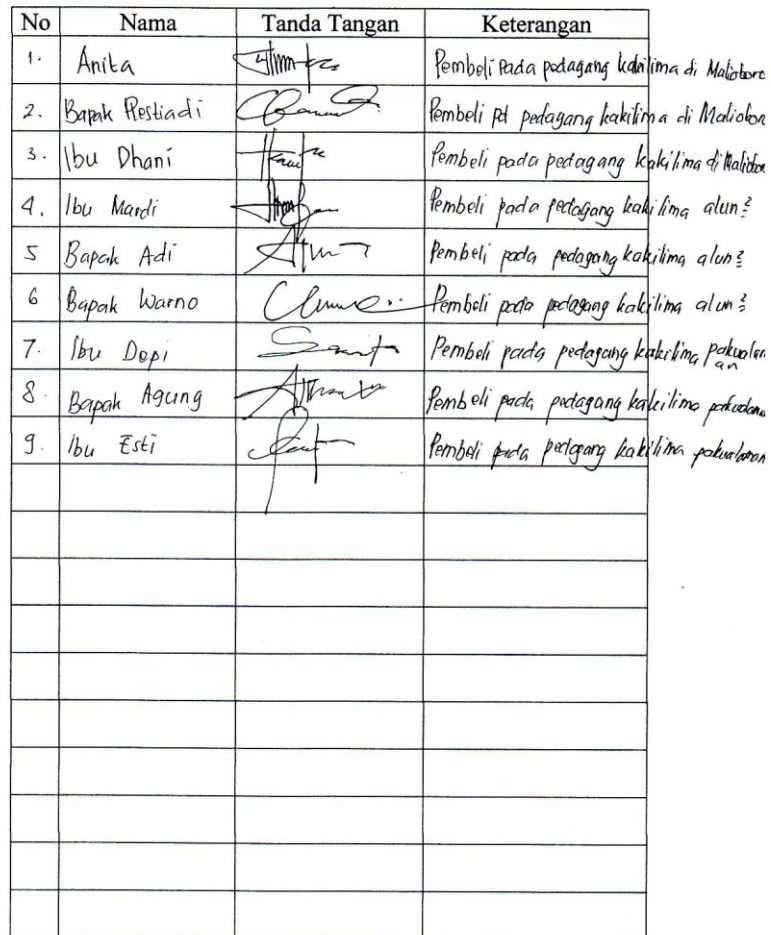 No Nama Tanda Tangan Keterangan
1. Anita Pembeli Pada pedagang kakilima di Malioboro
2. Bapak Restiadi Pembeli pd pedagang kakilima di Malioboro
3. Ibu Dhani Pembeli pada pedagang kakilima di Malioboro
4. Ibu Mardi Pembeli pada pedagang kakilima alun2
5 Bapak Adi Pembeli pada pedagang kakilima alun2
6 Bapak Warno Pembeli pada pedagang kakilima alun2
7. Ibu Depi Pembeli pada pedagang kakilima pakualaman
8. Bapak Agung Pembeli pada pedagang kakilima pakualaman
9. Ibu Esti Pembeli pada pedagang kakilima pakualaman